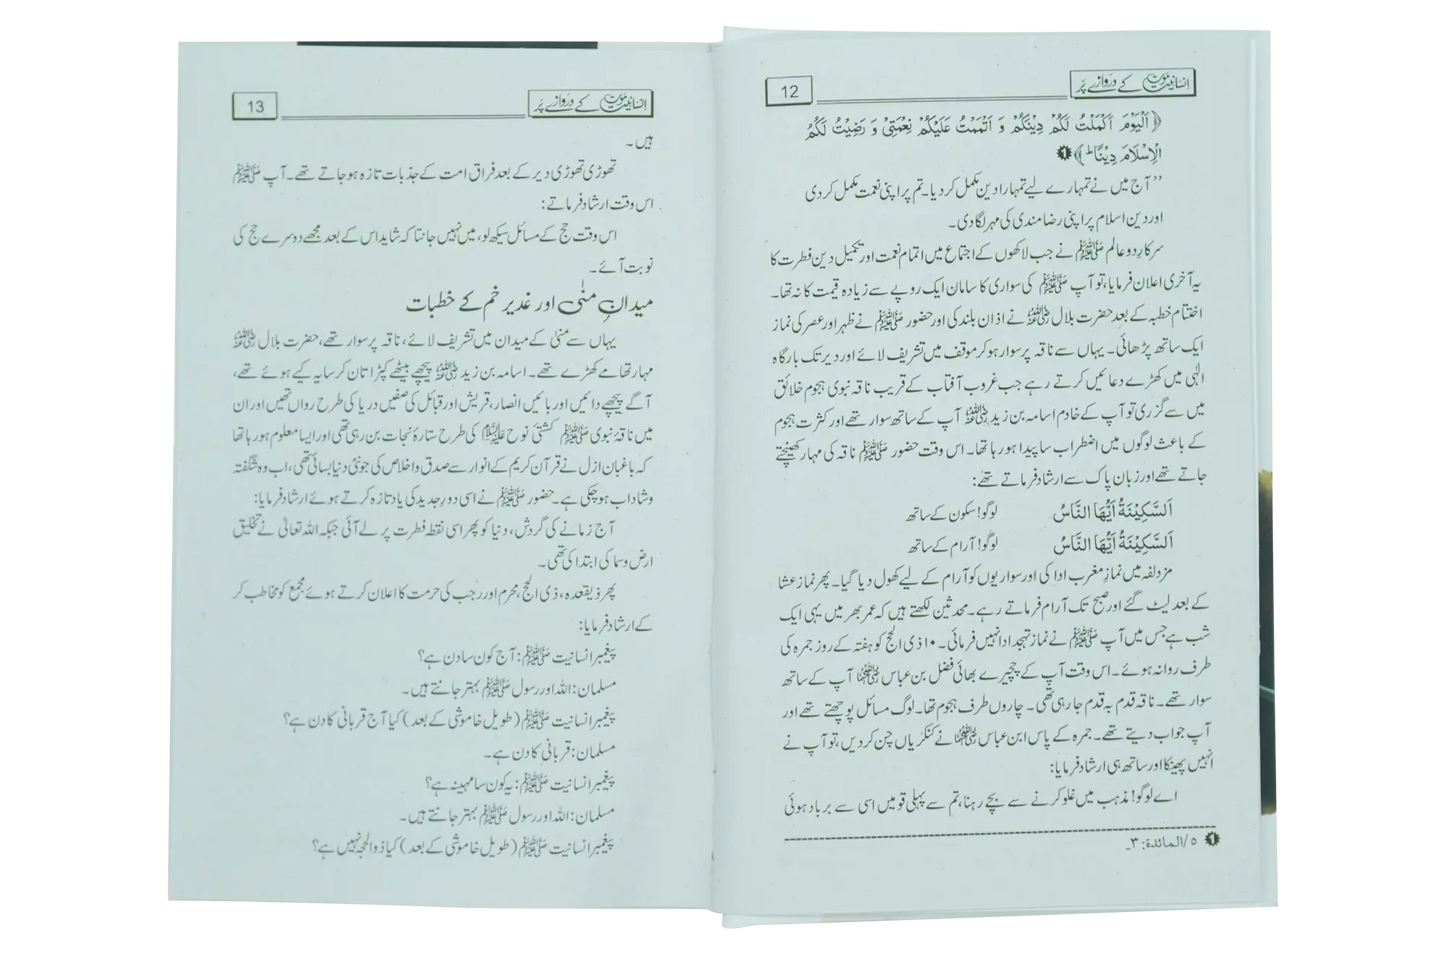 انسانیت موت کے دروازے پر
12
﴿اَلْیَوْمَ اَکْمَلْتُ لَکُمْ دِیْنَکُمْ وَ اَتْمَمْتُ عَلَیْکُمْ نِعْمَتِیْ وَ رَضِیْتُ لَکُمُ
الْاِسْلَامَ دِیْنًا ؕ﴾ ❶
’’آج میں نے تمہارے لیے تمہارا دین مکمل کر دیا۔ تم پر اپنی نعمت مکمل کر دی
اور دین اسلام پر اپنی رضا مندی کی مہر لگا دی۔
سرکارِ دو عالم ﷺ نے جب لاکھوں کے اجتماع میں اتمام نعمت اور تکمیل دین فطرت کا
یہ آخری اعلان فرمایا، تو آپ ﷺ کی سواری کا سامان ایک روپے سے زیادہ قیمت کا نہ تھا۔
اختتام خطبہ کے بعد حضرت بلال رضی اللہ عنہ نے اذان بلند کی اور حضور ﷺ نے ظہر اور عصر کی نماز
ایک ساتھ پڑھائی۔ یہاں سے ناقہ پر سوار ہو کر موقف میں تشریف لائے اور دیر تک بارگاہ
الٰہی میں کھڑے دعائیں کرتے رہے جب غروب آفتاب کے قریب ناقہ نبوی ہجوم خلائق
میں سے گزری تو آپ کے خادم اسامہ بن زید رضی اللہ عنہ آپ کے ساتھ سوار تھے اور کثرت ہجوم
کے باعث لوگوں میں اضطراب سا پیدا ہو رہا تھا۔ اس وقت حضور ﷺ ناقہ کی مہار کھینچتے
جاتے تھے اور زبان پاک سے ارشاد فرماتے تھے:
اَلسَّکِیْنَةُ اَیُّهَا النَّاسُ لوگو! سکون کے ساتھ
اَلسَّکِیْنَةُ اَیُّهَا النَّاسُ لوگو! آرام کے ساتھ
مزدلفہ میں نمازِ مغرب ادا کی اور سواریوں کو آرام کے لیے کھول دیا گیا۔ پھر نماز عشا
کے بعد لیٹ گئے اور صبح تک آرام فرماتے رہے۔ محدثین لکھتے ہیں کہ عمر بھر میں یہی ایک
شب ہے جس میں آپ ﷺ نے نماز تہجد ادا نہیں فرمائی۔ ۱۰ ذی الحج کو ہفتہ کے روز جمرہ کی
طرف روانہ ہوئے۔ اس وقت آپ کے چچیرے بھائی فضل بن عباس رضی اللہ عنہما آپ کے ساتھ
سوار تھے۔ ناقہ قدم بہ قدم جا رہی تھی۔ چاروں طرف ہجوم تھا۔ لوگ مسائل پوچھتے تھے اور
آپ جواب دیتے تھے۔ جمرہ کے پاس ابن عباس رضی اللہ عنہما نے کنکریاں چن کر دیں، تو آپ نے
انہیں پھینکا اور ساتھ ہی ارشاد فرمایا:
اے لوگو! مذہب میں غلو کرنے سے بچے رہنا، تم سے پہلی قومیں اسی سے برباد ہوئی
❶ ۵/المائدة: ۳۔
انسانیت موت کے دروازے پر
13
ہیں۔
تھوڑی تھوڑی دیر کے بعد فراق امت کے جذبات تازہ ہو جاتے تھے۔ آپ ﷺ
اس وقت ارشاد فرماتے:
اس وقت حج کے مسائل سیکھ لو، میں نہیں جانتا کہ شاید اس کے بعد مجھے دوسرے حج کی
نوبت آئے۔
میدانِ منیٰ اور غدیر خم کے خطبات
یہاں سے منیٰ کے میدان میں تشریف لائے، ناقہ پر سوار تھے، حضرت بلال رضی اللہ عنہ
مہار تھامے کھڑے تھے۔ اسامہ بن زید رضی اللہ عنہ پیچھے بیٹھے کپڑا تان کر سایہ کیے ہوئے تھے،
آگے پیچھے دائیں اور بائیں انصار، قریش اور قبائل کی صفیں دریا کی طرح رواں تھیں اور ان
میں ناقۂ نبوی ﷺ کشتی نوح علیہ السلام کی طرح ستارۂ نجات بن رہی تھی اور ایسا معلوم ہو رہا تھا
کہ باغبان ازل نے قرآن کریم کے انوار سے صدق و اخلاص کی جو نئی دنیا بسائی تھی، اب وہ شگفتہ
و شاداب ہو چکی ہے۔ حضور ﷺ نے اسی دورِ جدید کی یاد تازہ کرتے ہوئے ارشاد فرمایا:
آج زمانے کی گردش، دنیا کو پھر اسی نقطہ فطرت پر لے آئی جبکہ اللہ تعالیٰ نے تخلیق
ارض و سما کی ابتدا کی تھی۔
پھر ذیقعدہ، ذی الحج، محرم اور رجب کی حرمت کا اعلان کرتے ہوئے مجمع کو مخاطب کر
کے ارشاد فرمایا:
پیغمبر انسانیت ﷺ: آج کون سا دن ہے؟
مسلمان: اللہ اور رسول ﷺ بہتر جانتے ہیں۔
پیغمبر انسانیت ﷺ (طویل خاموشی کے بعد) کیا آج قربانی کا دن ہے؟
مسلمان: قربانی کا دن ہے۔
پیغمبر انسانیت ﷺ: یہ کون سا مہینہ ہے؟
مسلمان: اللہ اور رسول ﷺ بہتر جانتے ہیں۔
پیغمبر انسانیت ﷺ (طویل خاموشی کے بعد) کیا ذوالحجہ نہیں ہے؟